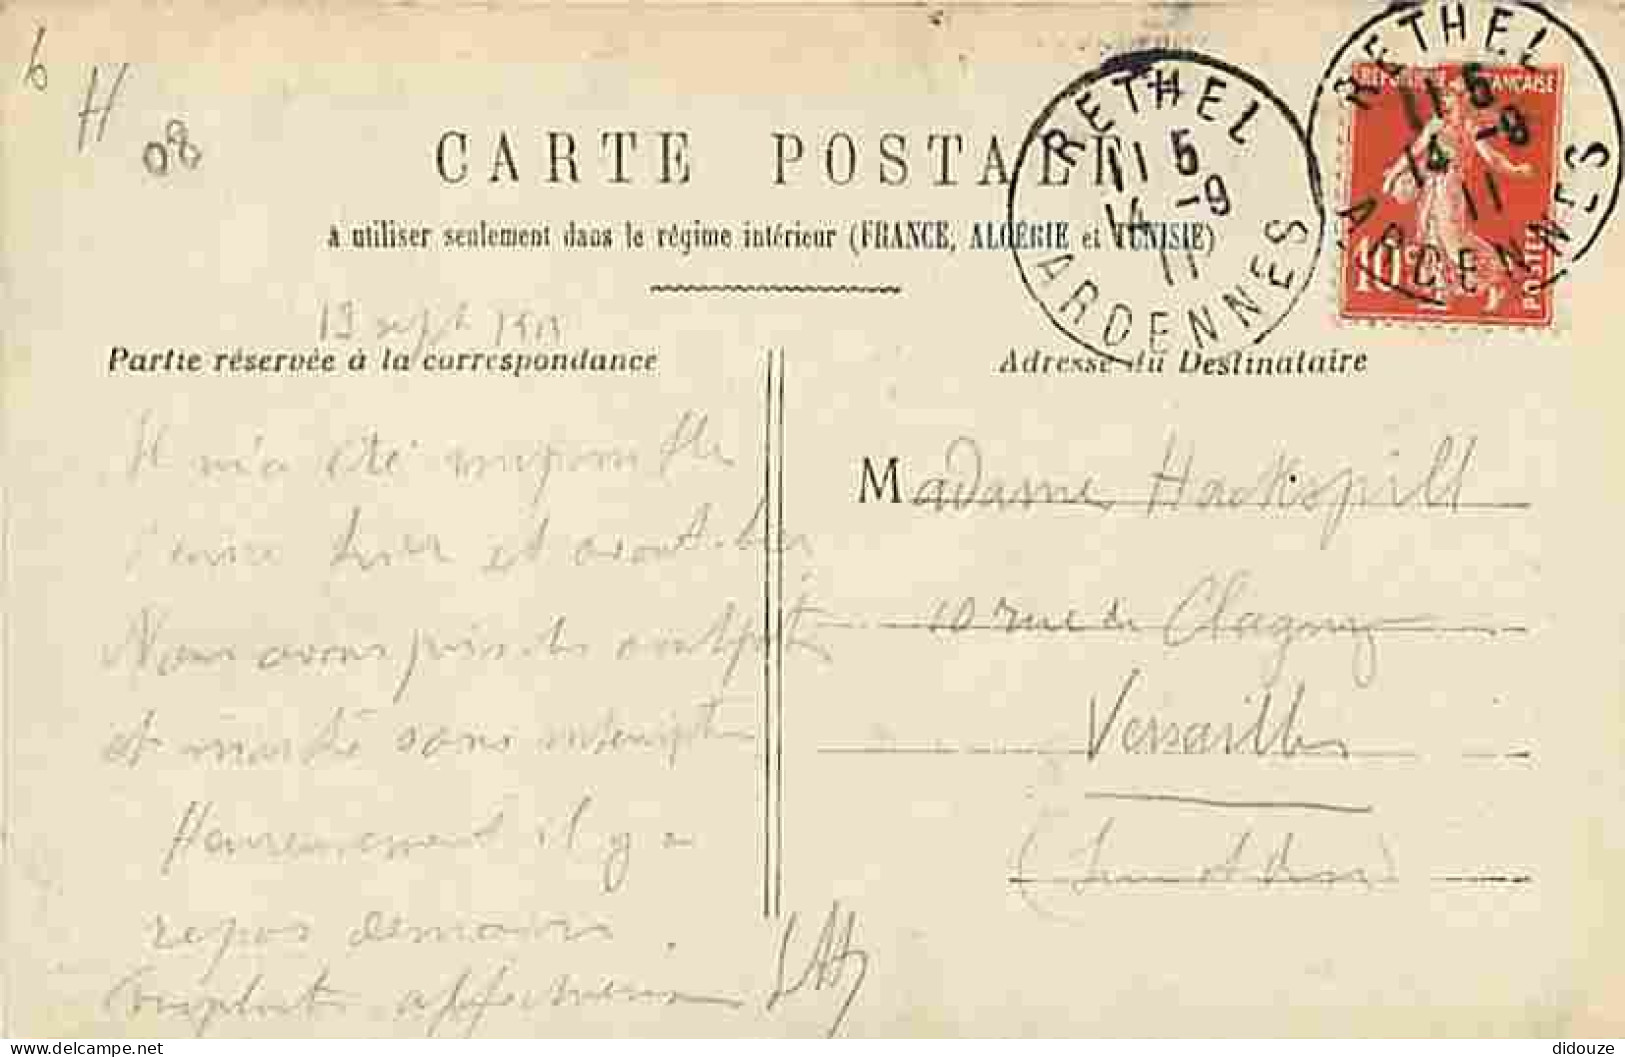 6
H
08
CARTE POSTALE
à utiliser seulement dans le régime intérieur (FRANCE, ALGÉRIE et TUNISIE)
RETHEL
11 5
14 -9
11
ARDENNES
RETHEL
11 5
14 -9
11
ARDENNES
REPUBLIQUE FRANÇAISE
10c
POSTES
13 sept
Partie réservée à la correspondance
Adresse du Destinataire
Il m'a été impossible
hier et avant-hier
Nous avons
et sans
Heureusement il y a
repos demain.
affectueux
Madame Hackspill
10 rue de Clagny
Versailles
(Seine et Oise)
Delcampe.net
didouze